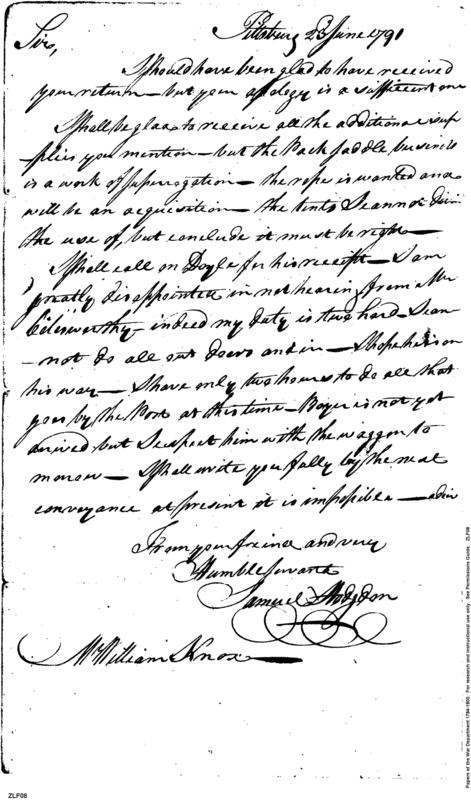 Pittsburg 23 June 1791
Sir,
I should have been glad to have received
your return — but your apology is a sufficient one
I shall be glad to receive all the additional sup
plies you mention — but the Pack Saddle business
is a work of supuragation — the rope is wanted and
will be an acquisition — the tents I cannot divine
the use of, but conclude it must be right —
I shall call on Doyle for his receipt — I am
greatly disappointed in not hearing from Mr
indeed my duty is too hard I can
not do all out doors and in — I hope he is on
his way — I have only two hours to do all that
goes by the Post at this time — Boyer is not yet
arrived but I expect him with the waggon to
morrow — I shall write you fully by the next
conveyance at present it is impossible — adieu
From your friend and very
Humble Servant
Samuel Hodgdon
Mr William Knox
Papers of the War Department 1784-1800. For research and instructional use only. See Permissions Guide. ZLF08
ZLF08